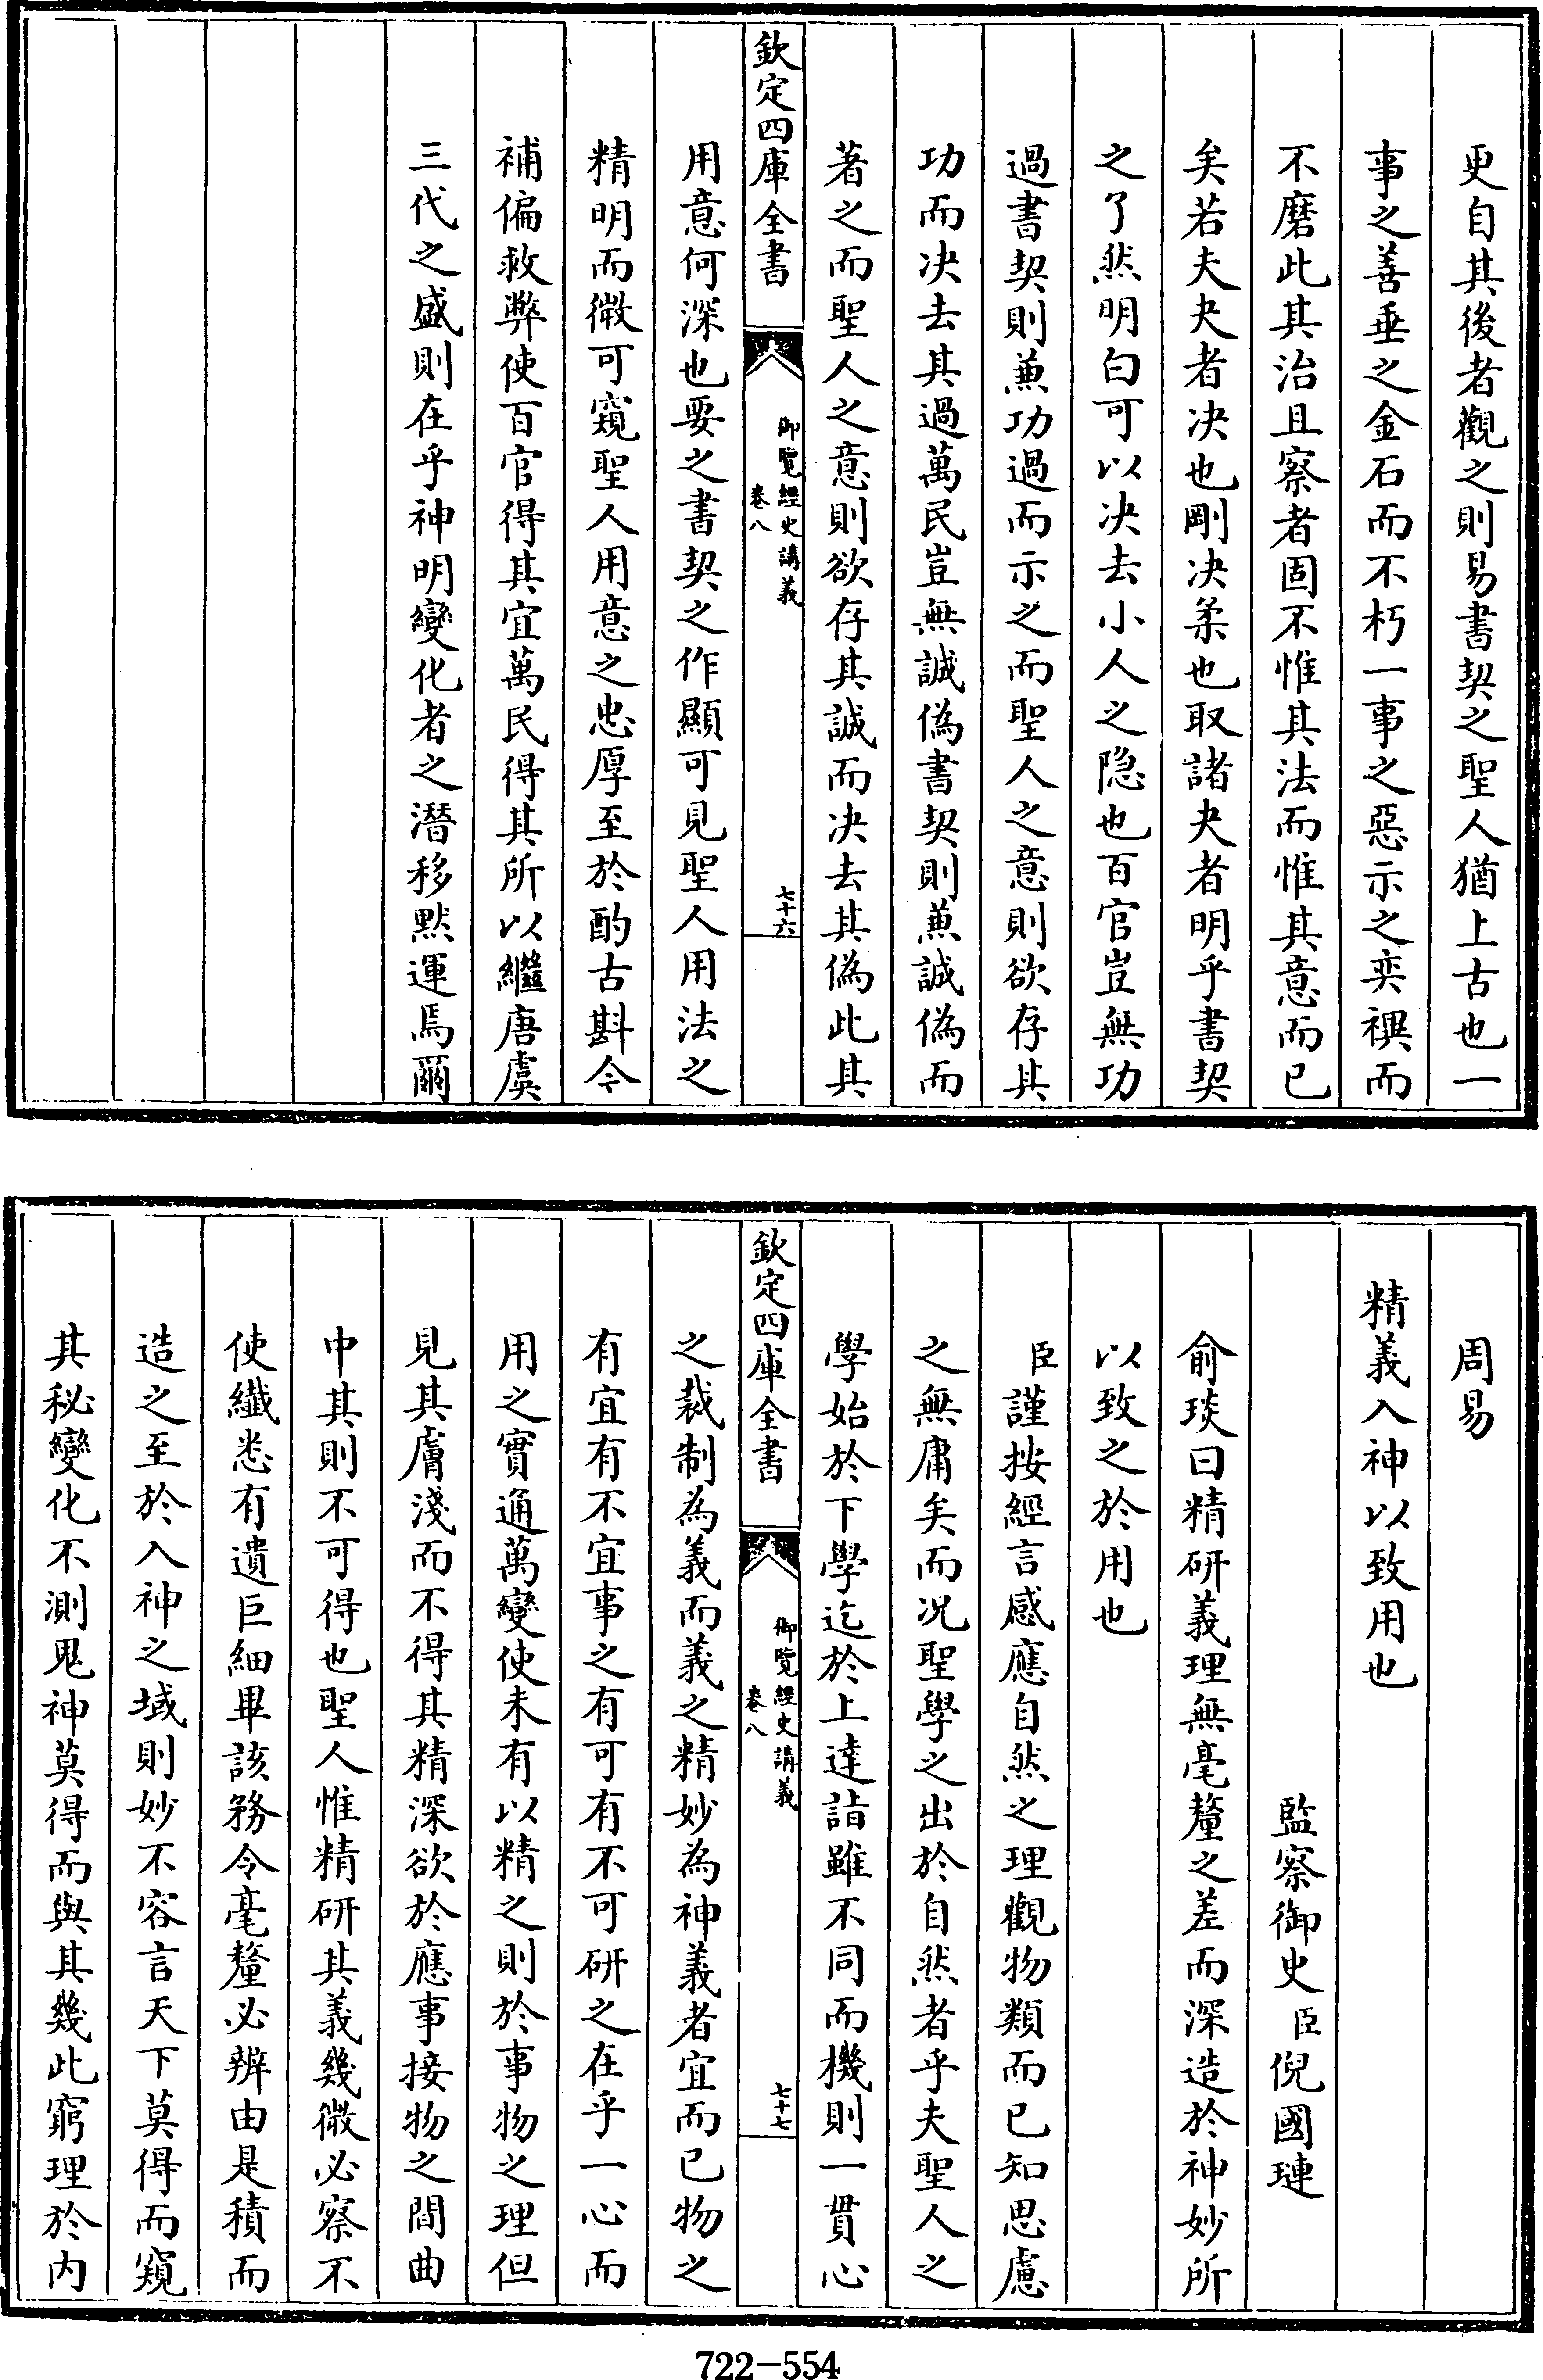 更自其後者觀之則易書契之聖人猶上古也一
事之善垂之金石而不朽一事之惡示之奕禩而
不磨此其治且察者固不惟其法而惟其意而已
矣若夫夬者决也剛决柔也取諸夬者明乎書契
之了然明白可以决去小人之隐也百官豈無功
過書契則兼功過而示之而聖人之意則欲存其
功而决去其過萬民豈無誠偽書契則兼誠偽而
著之而聖人之意則欲存其誠而决去其偽此其
欽定四庫全書
御覽經史講義
卷八
七十六
用意何深也要之書契之作顯可見聖人用法之
精明而微可窺聖人用意之忠厚至於酌古斟今
補偏救弊使百官得其宜萬民得其所以繼唐虞
三代之盛則在乎神明變化者之潛移默運焉爾
周易
精義入神以致用也
監察御史臣倪國璉
俞琰曰精研義理無毫釐之差而深造於神妙所
以致之於用也
臣謹按經言感應自然之理觀物類而已知思慮
之無庸矣而况聖學之出於自然者乎夫聖人之
學始於下學迄於上達詣雖不同而機則一貫心
欽定四庫全書
御覽經史講義
卷八
七十七
之裁制為義而義之精妙為神義者宜而已物之
有宜有不宜事之有可有不可研之在乎一心而
用之實通萬變使未有以精之則於事物之理但
見其膚淺而不得其精深欲於應事接物之間曲
中其則不可得也聖人惟精研其義幾微必察不
使纎悉有遺巨細畢該務令毫釐必辨由是積而
造之至於入神之域則妙不容言天下莫得而窺
其秘變化不測鬼神莫得而與其幾此窮理於内
722-554